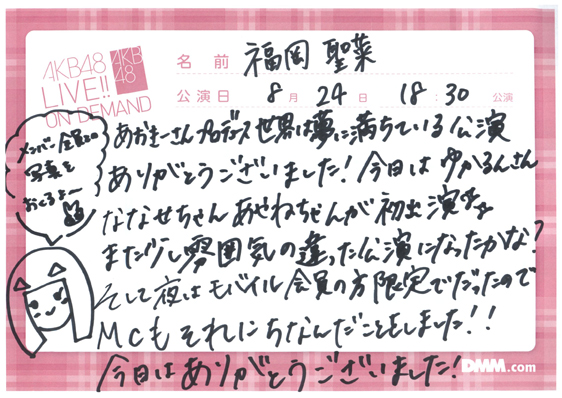 AKB48
LIVE!!
ON DEMAND
AKB
48
名前 福岡 聖菜
公演日 8月24日 18:30 公演
メンバー全員との
写真を
おくるよ〜
あおきーさんプロデュース世界は夢に満ちている公演
ありがとうございました！今日はゆかるんさん
ななせちゃんあやねちゃんが初出演で
また少し雰囲気の違った公演になったかな？
そして夜はモバイル会員の方限定でだったので
MCもそれにちなんだこともしました！！
今日はありがとうございました！
DMM.com